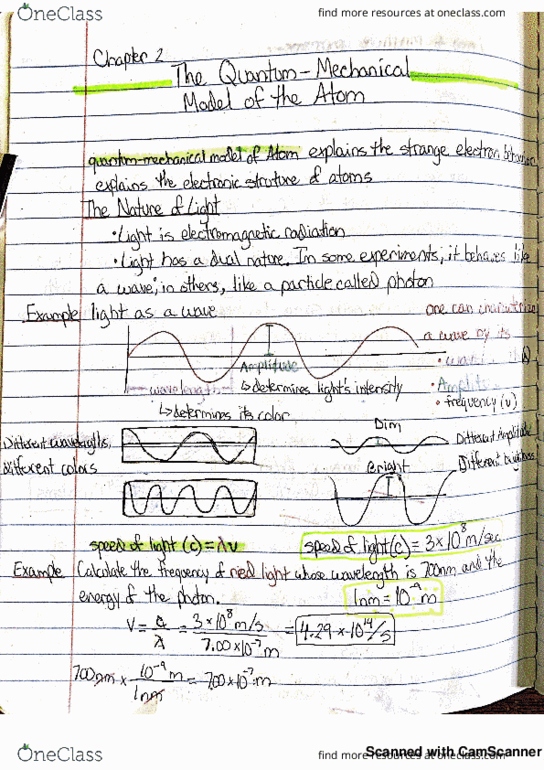 OneClass
find more resources at oneclass.com
Chapter 2
The Quantum-Mechanical
Model of the Atom
quantum-mechanical model of Atom explains the strange electron
explains the electronic struture of atoms
The Nature of Light
• Light is electromagnetic radiation
• Light has a dual nature. In some experiments, it behaves like
a wave; in others, like a particle called photon
Example light as a wave
one can
a wave by its
•
• Amplit
• frequency (ν)
Amplitude
↳ determines light's intensity
wavelength
↳ determines its color
Different wavelengths,
different colors
Dim
Different Amplitude
Bright
Different
speed of light (c) = λν
speed of light (c) = 3×10⁸ m/sec
Example Calculate the frequency of red light whose wavelength is 700nm and the
energy of the photon.
1nm = 10⁻⁹ m
V = c/λ = 3×10⁸ m/s / 7.00×10⁻⁷ m = 4.29×10¹⁴/s
700nm × 10⁻⁹ m / 1nm = 7.00×10⁻⁷ m
OneClass
find more resources at oneclass.com
Scanned with CamScanner